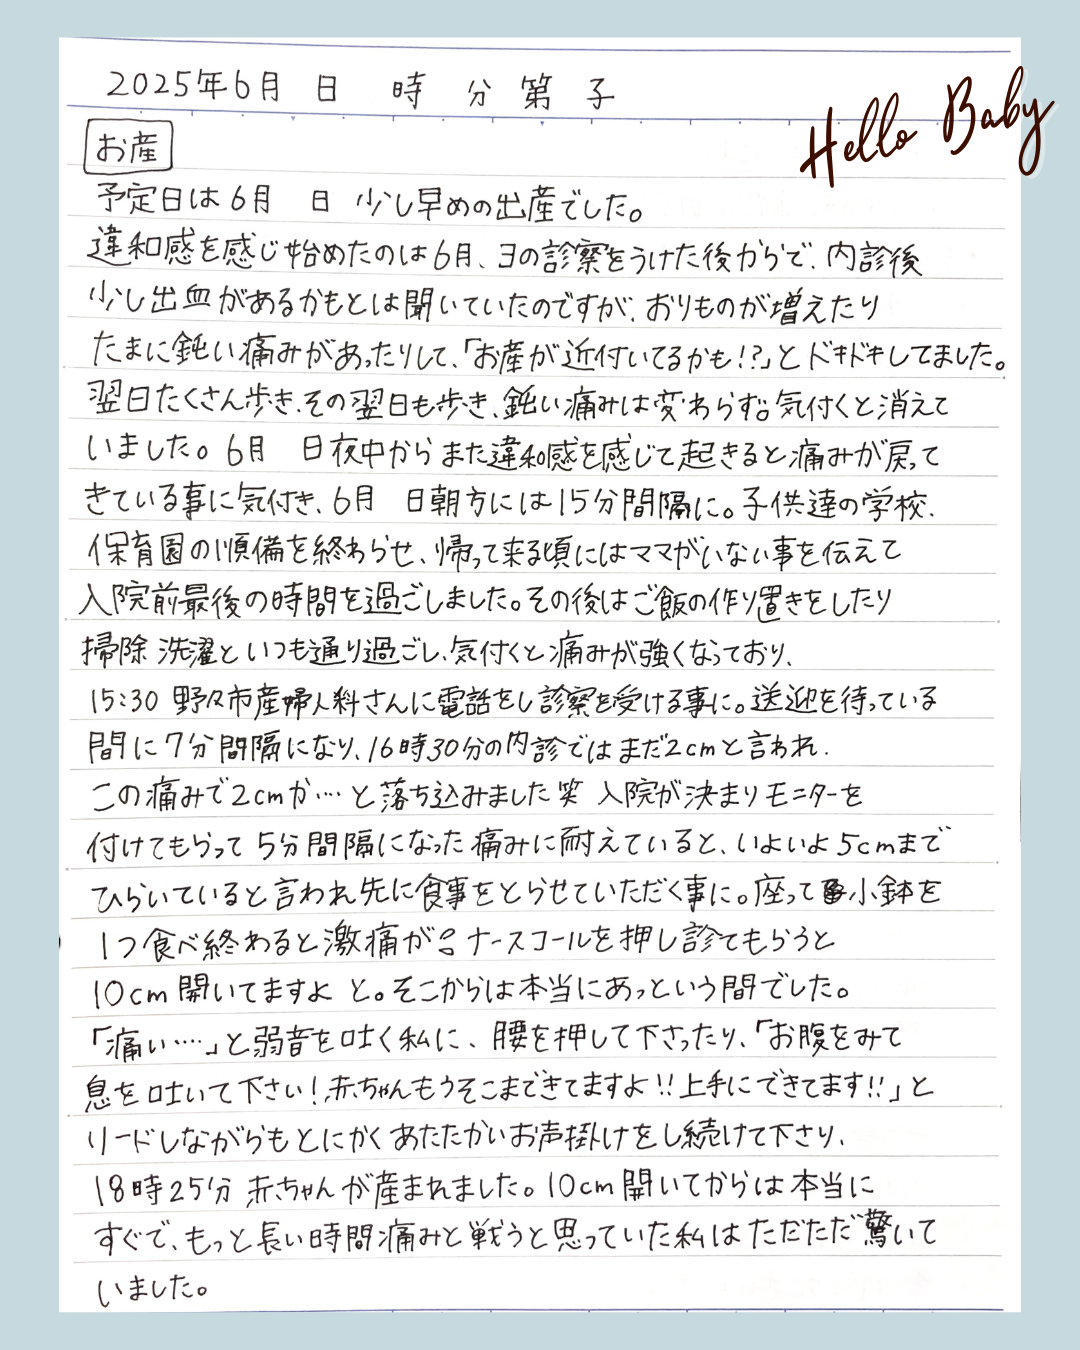 2025年6月 日 時 分 第 子
Hello Baby
お産
予定日は6月 日 少し早めの出産でした。
違和感を感じ始めたのは6月、ヨの診察をうけた後からで、内診後
少し出血があるかもとは聞いていたのですが、おりものが増えたり
たまに鈍い痛みがあったりして、「お産が近付いてるかも!?」とドキドキしてました。
翌日たくさん歩き、その翌日も歩き、鈍い痛みは変わらず。気付くと消えて
いました。6月 日夜中からまた違和感を感じて起きると痛みが戻って
きている事に気付き、6月 日朝方には15分間隔に。子供達の学校、
保育園の順備を終わらせ、帰って来る頃にはママがいない事を伝えて
入院前最後の時間を過ごしました。その後はご飯の作り置きをしたり
掃除 洗濯といつも通り過ごし、気付くと痛みが強くなっており、
15:30 野々市産婦人科さんに電話をし診察を受ける事に。送迎を待っている
間に7分間隔になり、16時30分の内診ではまだ2cmと言われ、
この痛みで2cmか…と落ち込みました笑 入院が決まりモニターを
付けてもらって5分間隔になった痛みに耐えていると、いよいよ5cmまで
ひらいていると言われ先に食事をとらせていただく事に。座って小鉢を
1つ食べ終わると激痛が。ナースコールを押し診てもらうと
10cm開いてますよ と。そこからは本当にあっという間でした。
「痛い…。」と弱音を吐く私に、腰を押して下さったり、「お腹をみて
息を吐いて下さい!赤ちゃんもうそこまできてますよ!!上手にできてます!!」と
リードしながらもとにかくあたたかいお声掛けをし続けて下さり、
18時25分 赤ちゃんが産まれました。10cm開いてからは本当に
すぐで、もっと長い時間痛みと戦うと思っていた私はただただ驚いて
いました。